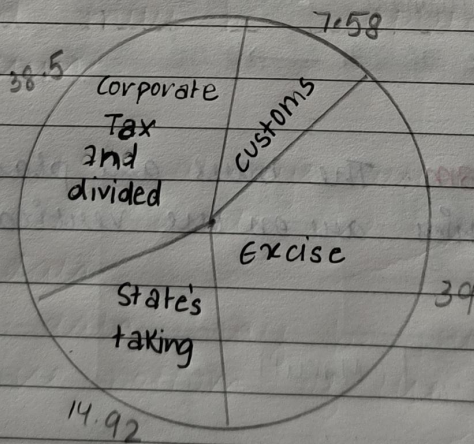 7.58
38.5
Corporate
Tax
and
divided
Customs
Excise
State's
taking
39
14.92